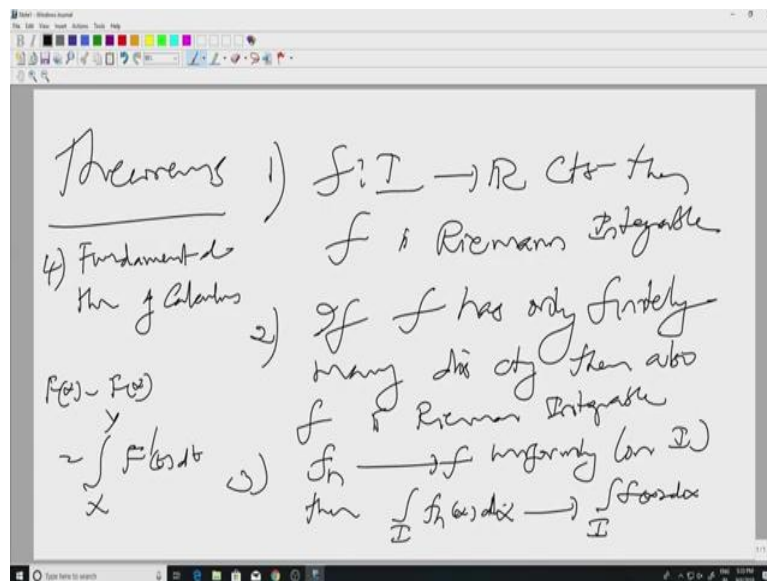 Note1 - Windows Journal
File Edit View Insert Actions Tools Help
Theorems
1) f: I → R Cts then
f is Riemann Integrable
2) If f has only finitely
many dis cty then also
f is Riemann Integrable
3) fn → f uniformly (on I)
then ∫_I fn(x)dx → ∫_I f(x)dx
4) Fundamental
thm of Calculus
= ∫_x^y F'(t)dt
1/1
Type here to search
ENG 5:03 PM